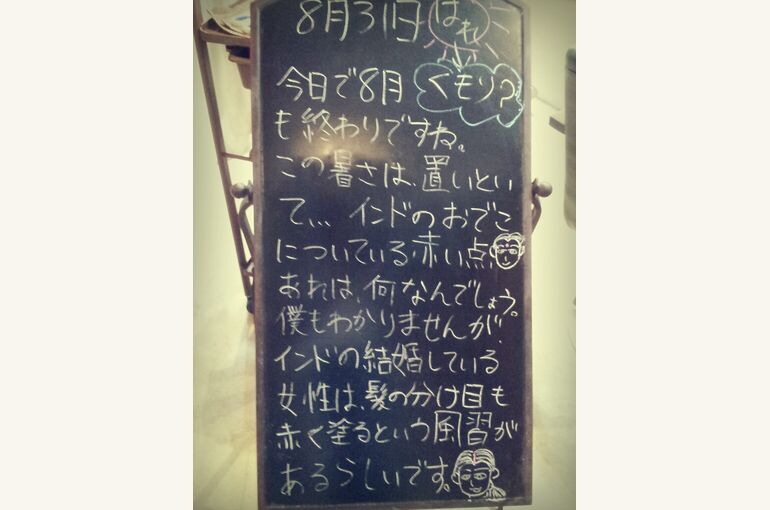 8月31日 はれ
今日で8月 くもり?
も終わりですね。
この暑さは、置いとい
て、、、インドのおでこ
についている赤い点、
あれは、何なんでしょう。
僕もわかりませんが、
インドの結婚している
女性は、髪の分け目も
赤く塗るという風習が
あるらしいです。